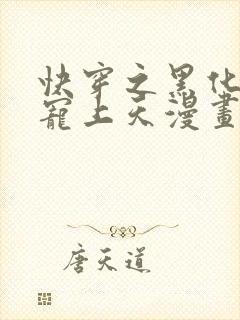 快穿之黑化
寵上天漫畫
唐天道